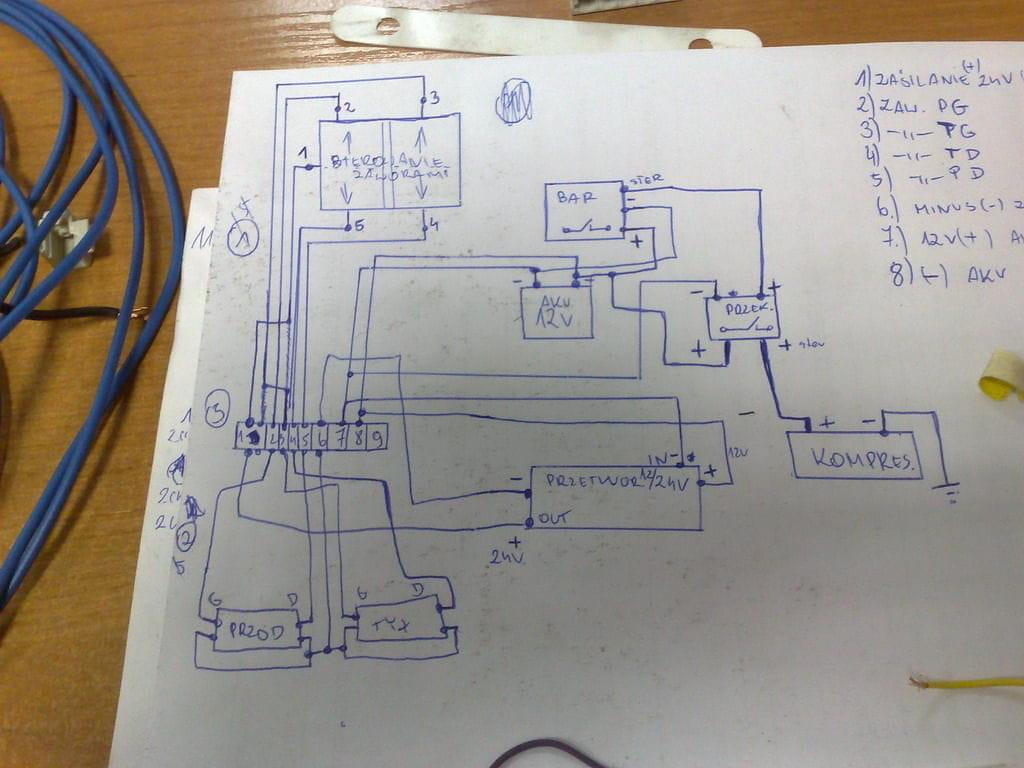 1) ZASILANIE (+) 24V
2) ZAW. PG
3) -||- TG
4) -||- TD
5) -||- PD
6.) MINUS (-) Z
7.) 12V (+) AK
8) (-) AKU
2
3
1
STEROWANIE
ZAWORAMI
5
4
11
1
BAR
STER
-
+
-
+
AKU
12V
-
+
PRZEK.
+
+
3
1
1 2 3 4 5 6 7 8 9
2
5
-
+
-
KOMPRES.
12V
IN - +
PRZETWOR 12/24V
-
OUT
+
24V
G D
PRZÓD
G D
TYŁ